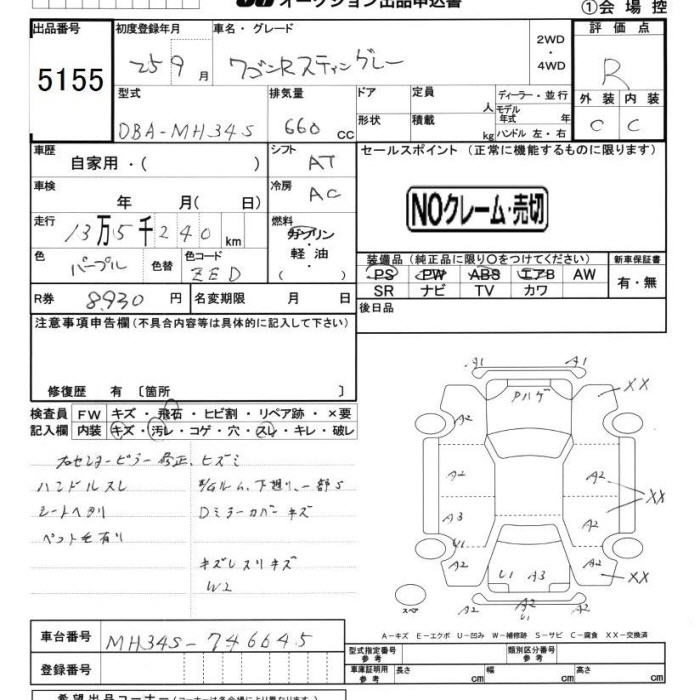 オークション出品申込書
①会場控
出品番号
5155
初度登録年月
25 9月
車名・グレード
ワゴンRスティングレー
2WD
・
4WD
評価点
R
型式
DBA-MH34S
排気量
660 cc
ドア
定員
人
形状
積載
kg
ディーラー・並行
モデル年式 年
ハンドル 左・右
外装 内装
C C
車歴
自家用・( )
シフト
AT
車検
年 月( 日)
冷房
AC
走行
13万5千240km
燃料
ガソリン
軽油
( )
色
パープル
色替
色コード
ZED
R券 8930円
名変期限 月 日
セールスポイント (正常に機能するものに限ります)
NOクレーム・売切
装備品(純正品に限り〇をつけてください)
PS PW ABS エアB AW
SR ナビ TV カワ
新車保証書
有・無
後日品
注意事項申告欄(不具合内容等は具体的に記入して下さい)
修復歴 有 〔箇所 〕
検査員記入欄
FW キズ・飛石・ヒビ割・リペア跡・×要
内装 キズ・汚レ・コゲ・穴・スレ・キレ・破レ
センターピラー修正、ヒズミ
ハンドルスレ
ルーム、下廻り、一部S
シートヘタリ
Dミラーカバーキズ
ペット毛有り
キズ
W2
A1 A1
ハゲ
XX
A2
A2
A2
XX
A3
A2
U1
A2
A2
U1 A3
XX
A2
U1
A2
スペ
A-キズ E-エクボ U-凹み W-補修跡 S-サビ C-腐食 XX-交換済
車台番号
MH34S-746645
登録番号
型式指定番号 参考
類別区分番号 参考
車庫証明用 参考
長さ cm
幅 cm
高さ cm
希望出品コーナー(コーナー名は各会場により異なります)